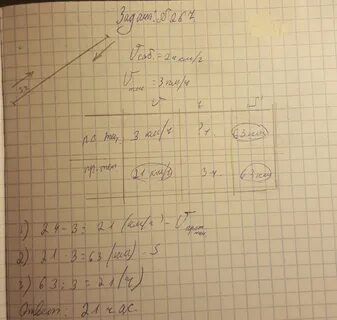 Задача №267
Vсоб. = 24 км/ч
Vтеч = 3 км/ч
V t S
по теч. 3 км/ч ? ч. 63 км
пр. теч 21 км/ч 3 ч. 63 км
1) 24 - 3 = 21 (км/ч) - V прот теч
2) 21 · 3 = 63 (км) - S
3) 63 : 3 = 21 (ч)
Ответ: 21 час.